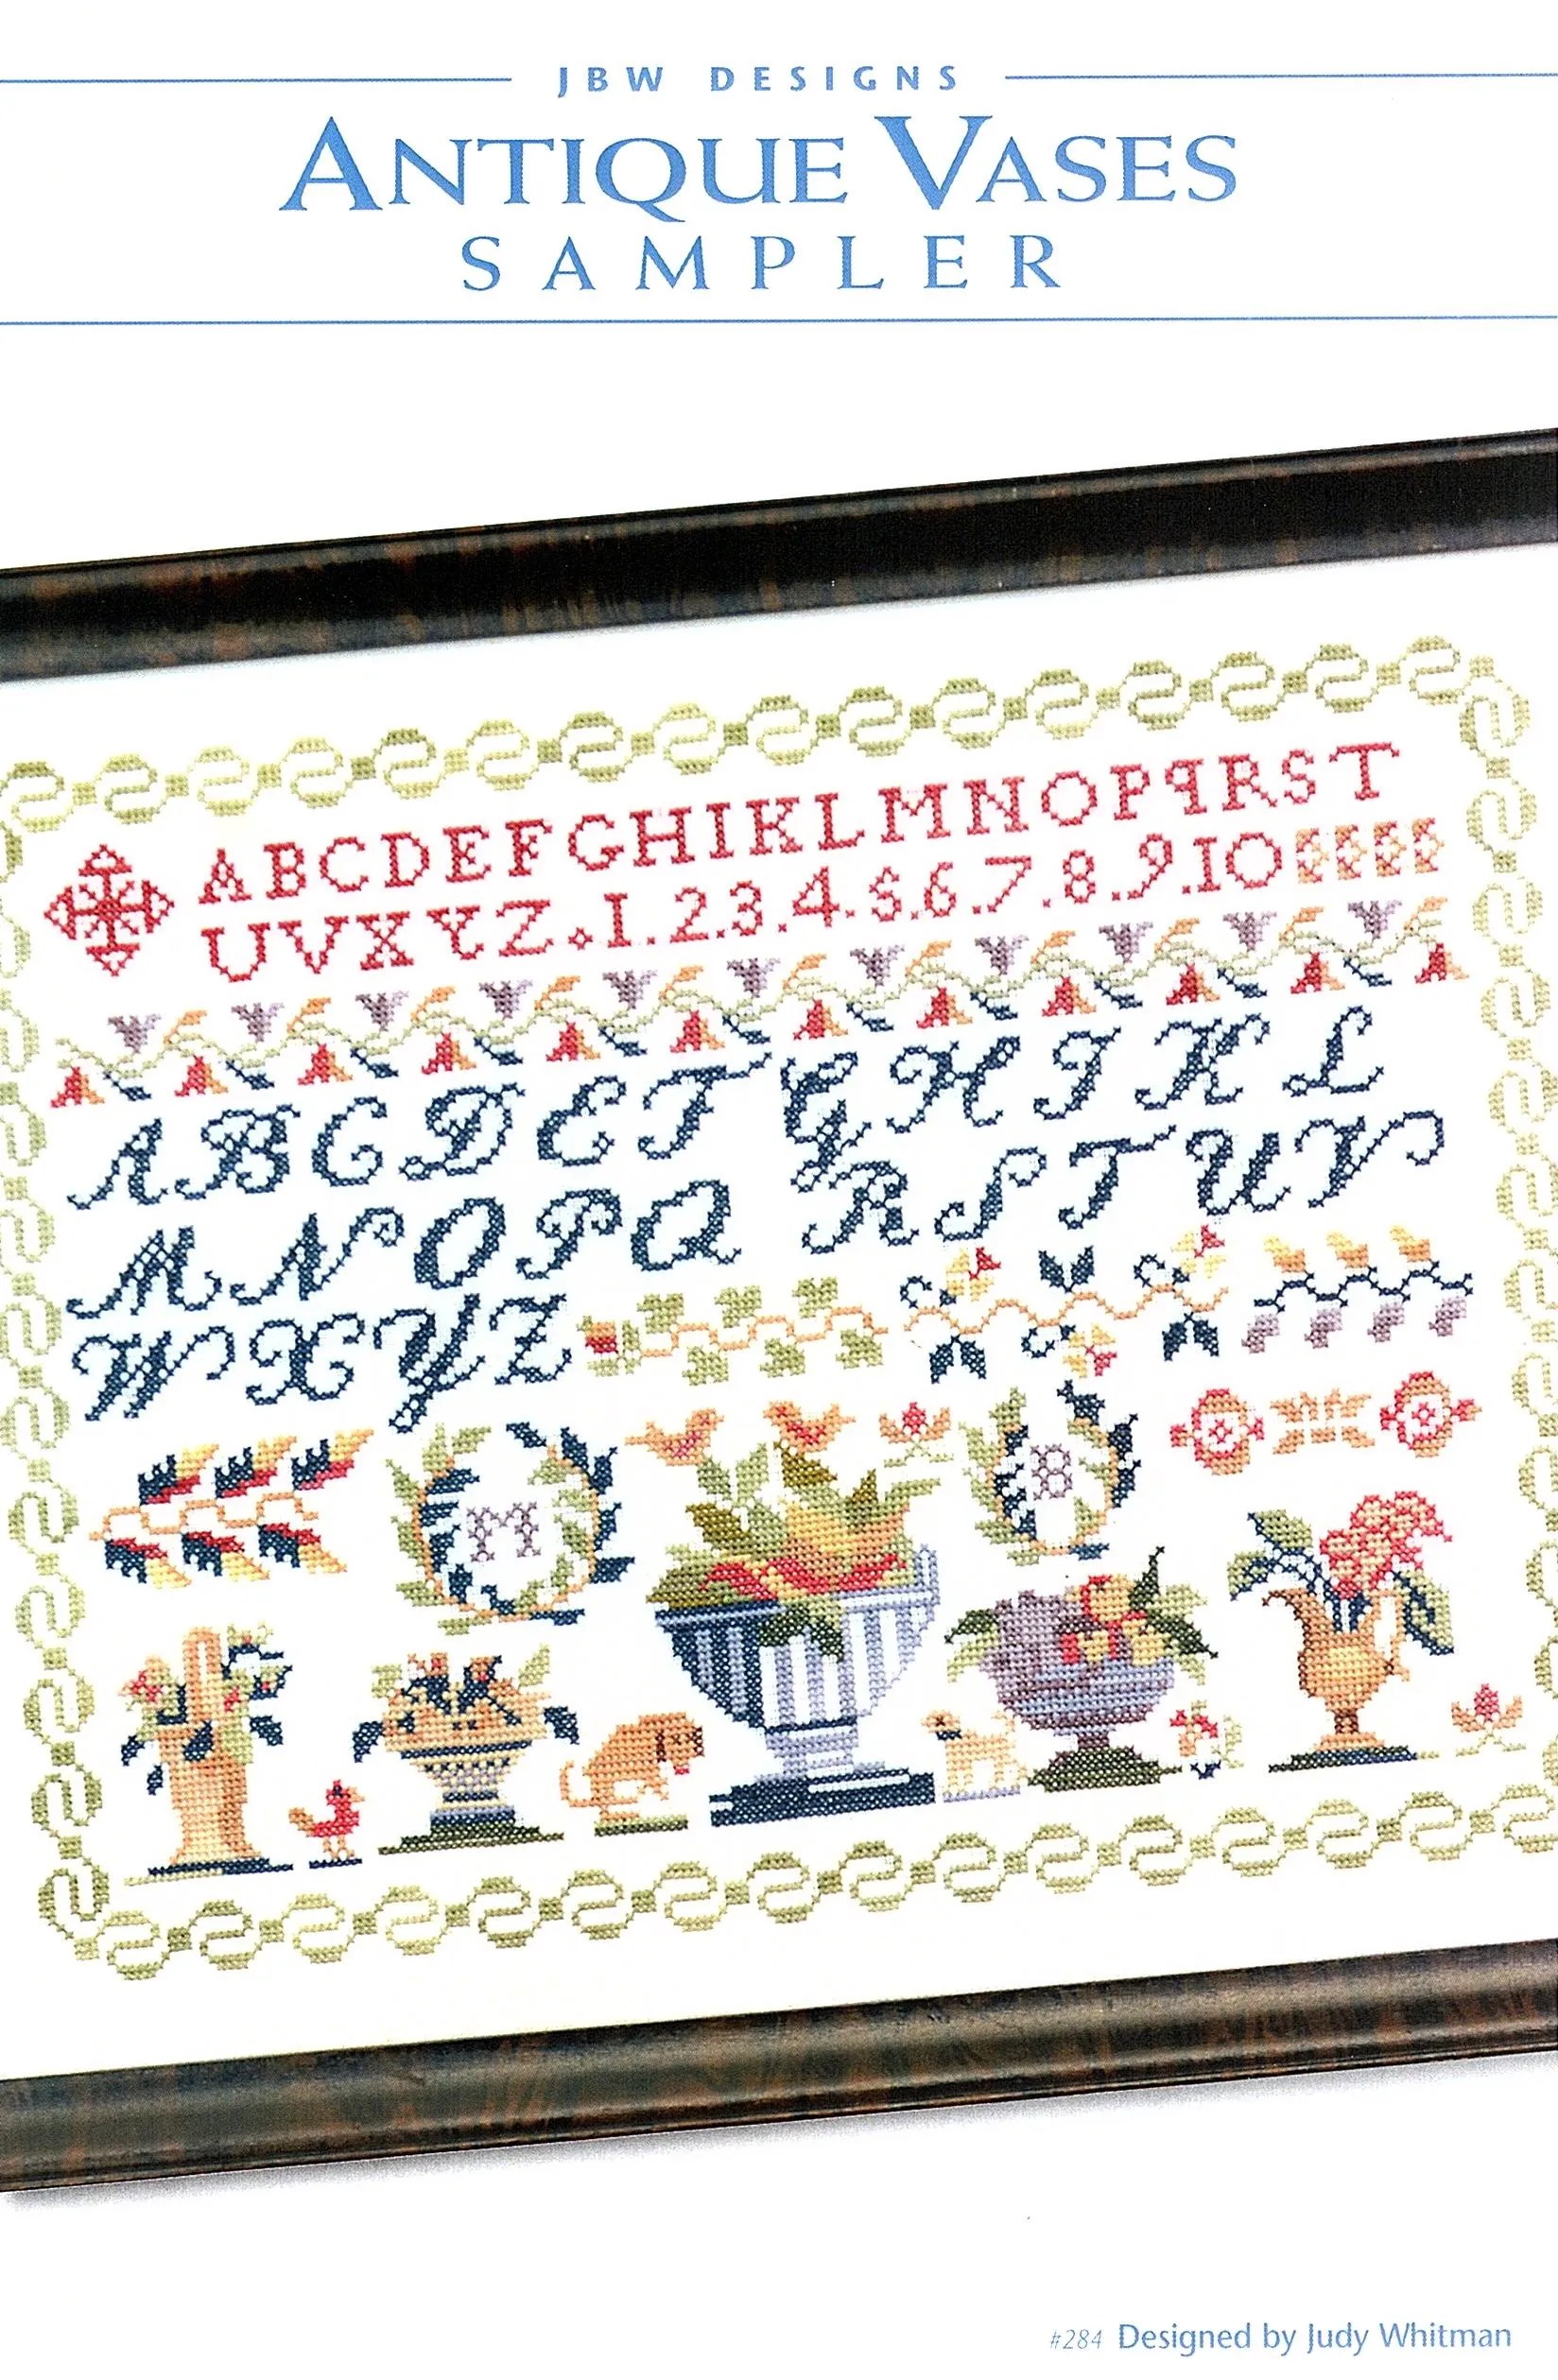 JBW DESIGNS
ANTIQUE VASES
SAMPLER
ABCDEFGHIKLMNOPqRST
UVXYZ.1.2.3.4.5.6.7.8.9.10
ABCDEFGHIKL
MNOPQRSTUV
WXYZ
M B
#284 Designed by Judy Whitman